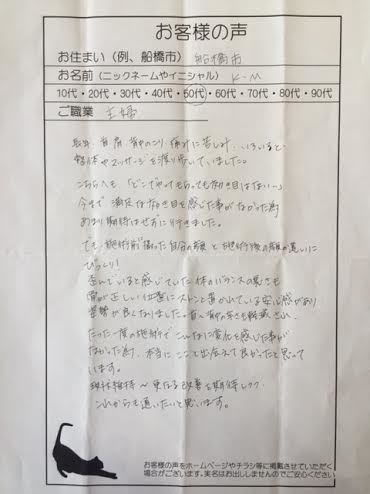 お客様の声
お住まい（例、船橋市） 船橋市
お名前（ニックネームやイニシャル） K.M
10代・20代・30代・40代・50代・60代・70代・80代・90代
ご職業 主婦
首 肩 背中のこり 痛みに苦しみ いろいろと
整体やマッサージを渡り歩いていました。
こちらへも「どこでやってもらっても効き目はない…」
今まで 満足な効き目を感じた事がなかった為
あまり期待はせずに行きました。
でも 施術前 撮った自分の顔と 施術後の顔の違いに
びっくり！
歪んでいると感じていた 体のバランスの悪さも
骨が正しい位置にストンと置かれている安心感があり
姿勢が良くなりました。首〜背中の辛さも軽減され、
たった一度の施術で こんなに変化を感じた事が
なかった為、本当に ここと出会えて良かったと思って
います。
現状維持〜更なる改善を期待しつつ
これからも通いたいと思います。
お客様の声をホームページやチラシ等に掲載させていただく
場合がございます。実名はお出ししませんのでご安心ください